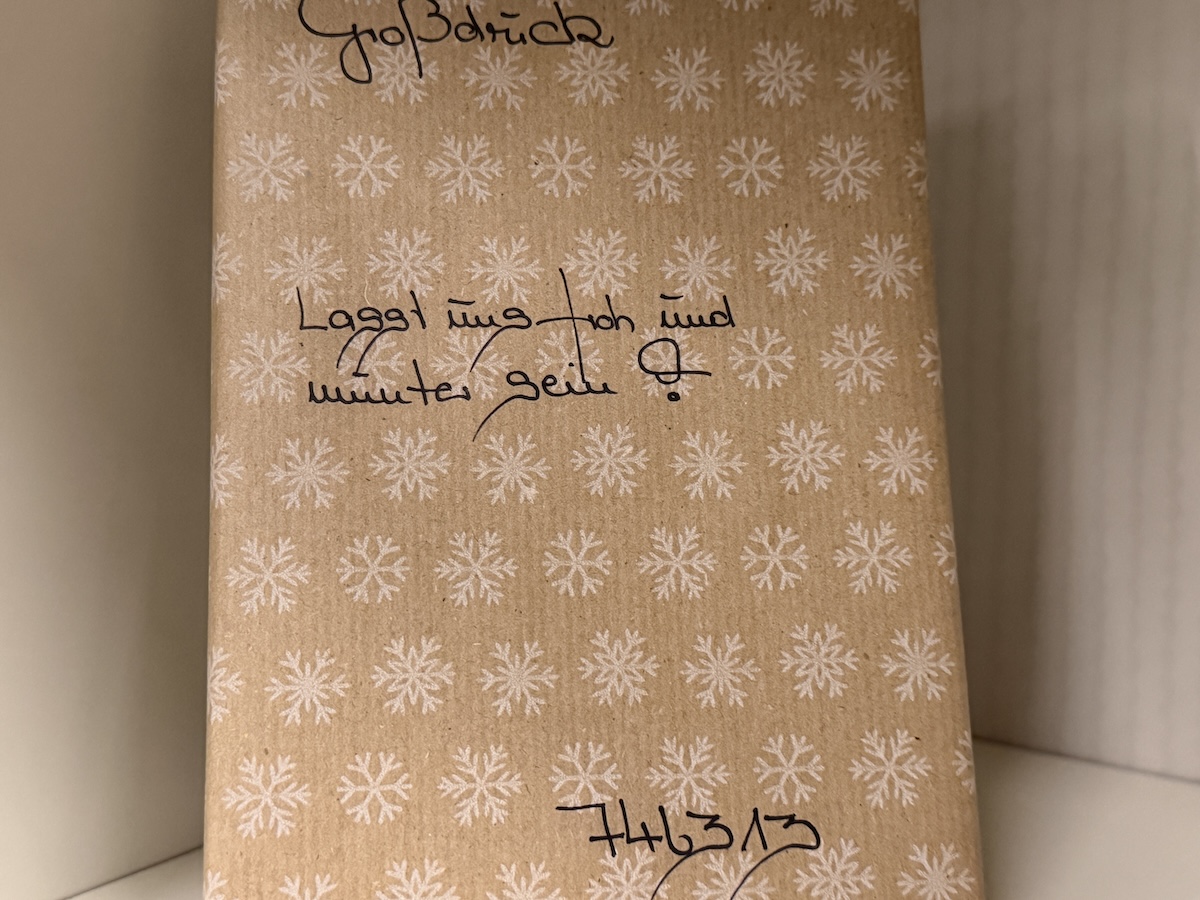 Großdruck
Lasst uns froh und
munter sein!
746313